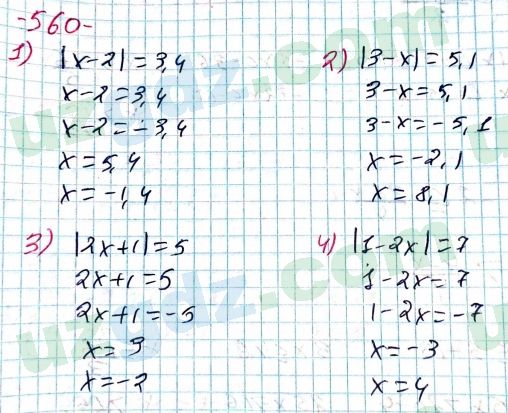 -560-
1) |x-2|=3,4
x-2=3,4
x-2=-3,4
x=5,4
x=-1,4
2) |3-x|=5,1
3-x=5,1
3-x=-5,1
x=-2,1
x=8,1
3) |2x+1|=5
2x+1=5
2x+1=-5
x=3
x=-2
4) |1-2x|=7
1-2x=7
1-2x=-7
x=-3
x=4